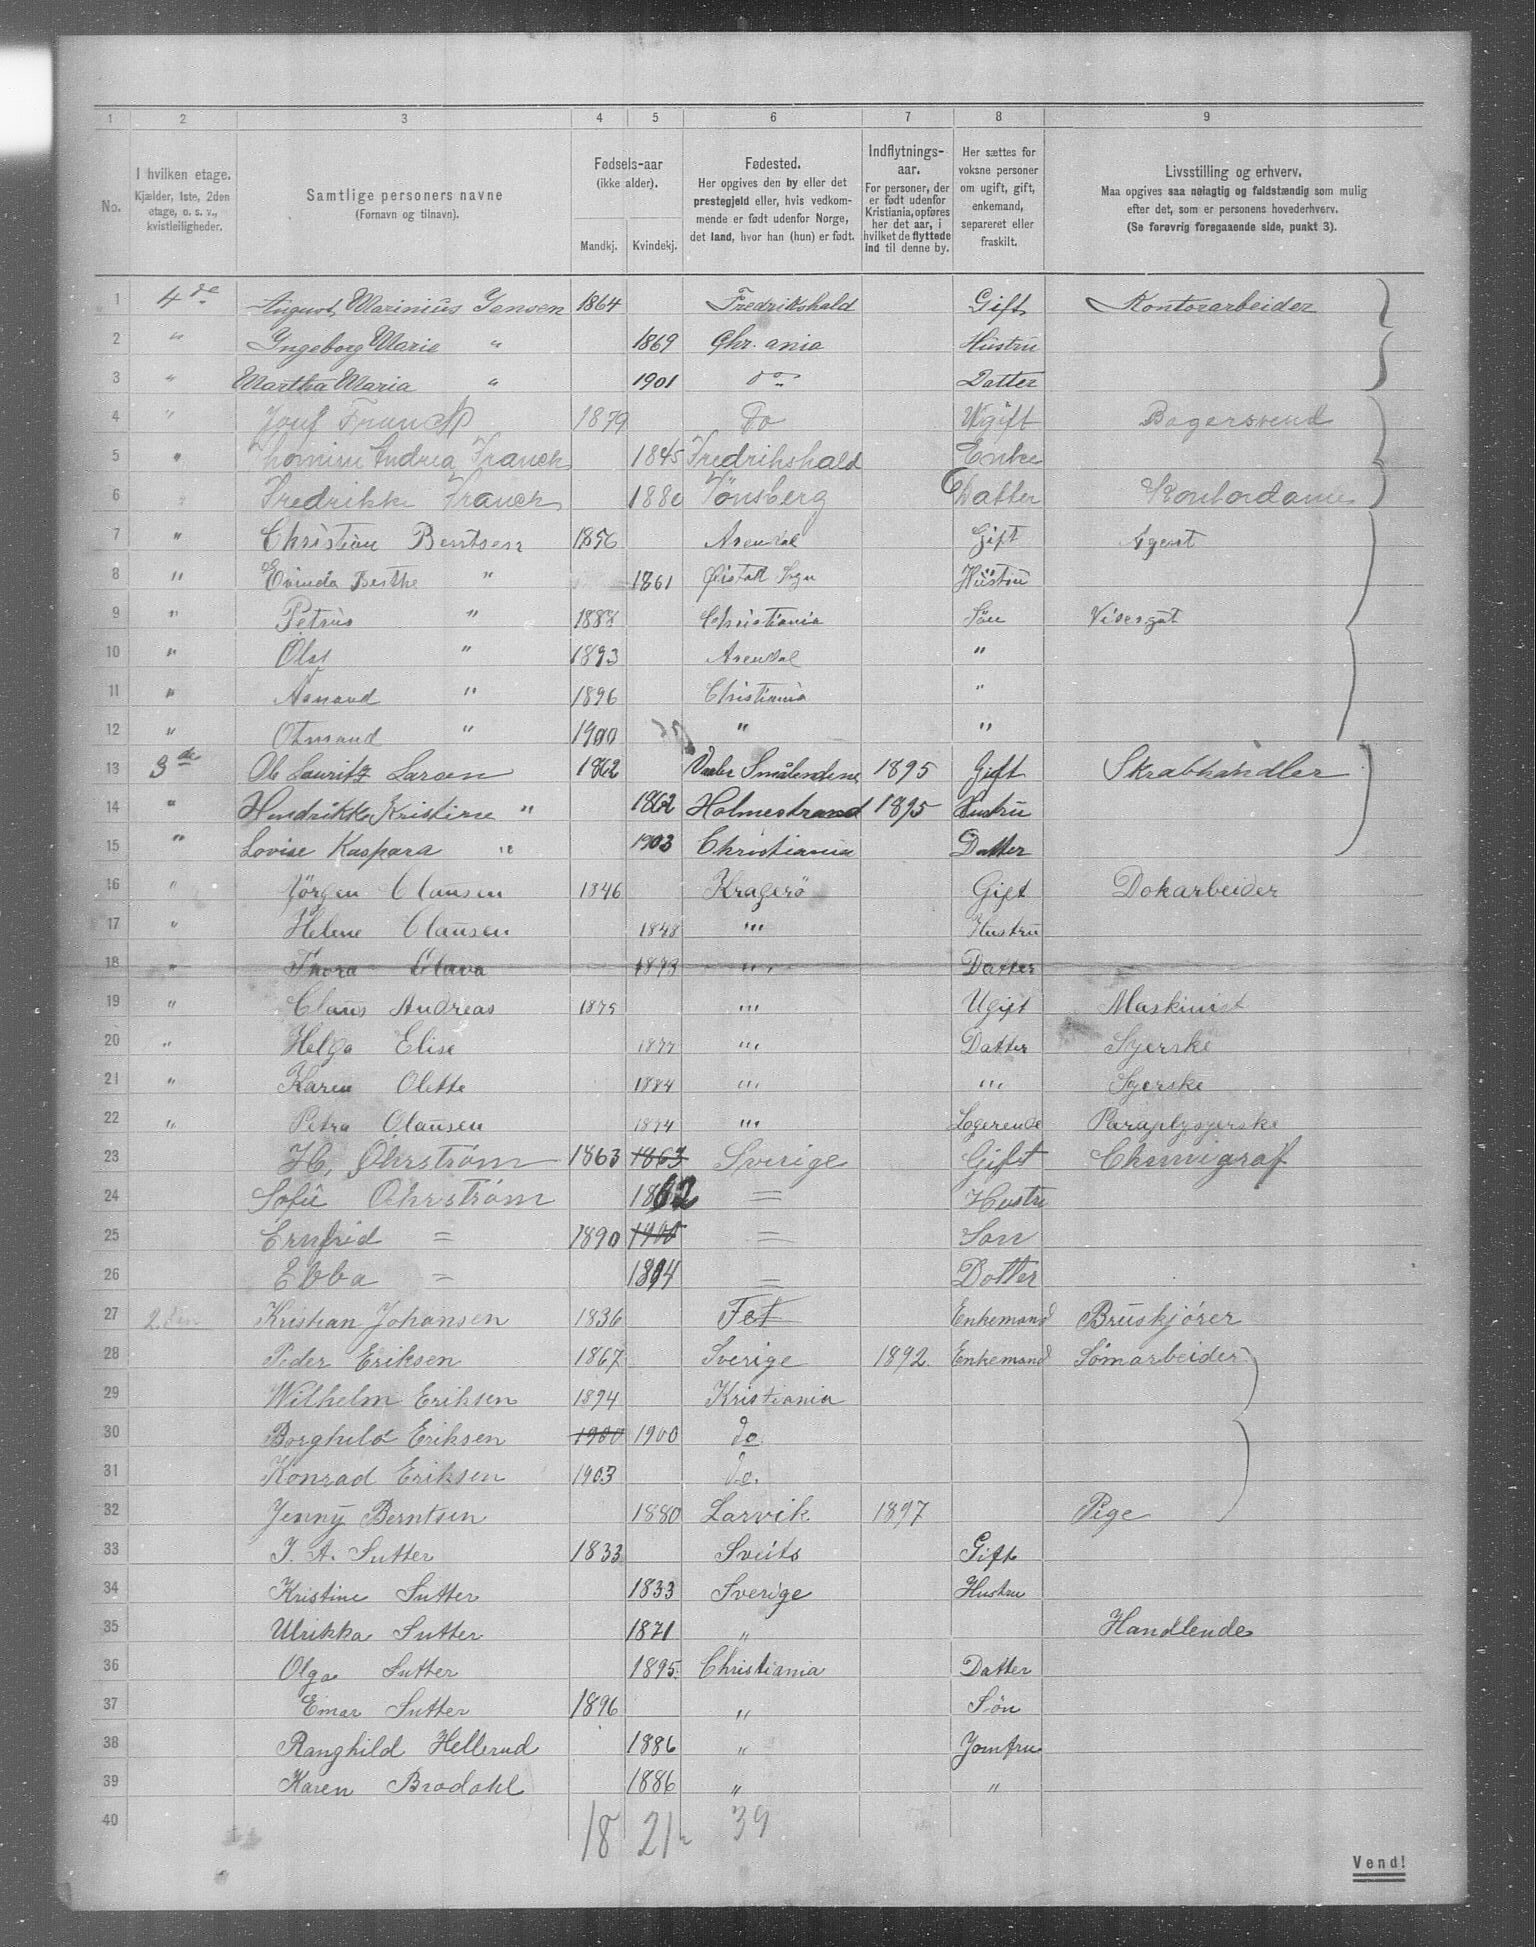 1 2 3 4 5 6 7 8 9
No.
I hvilken etage.
Kjælder, 1ste, 2den
etage, o. s. v.,
kvistleiligheder.
Samtlige personers navne
(Fornavn og tilnavn).
Fødsels-aar
(ikke alder).
Mandkj. Kvindekj.
Fødested.
Her opgives den by eller det
prestegjeld eller, hvis vedkom-
mende er født udenfor Norge,
det land, hvor han (hun) er født.
Indflytnings-
aar.
For personer, der
er født udenfor
Kristiania, opføres
her det aar, i
hvilket de flyttede
ind til denne by.
Her sættes for
voksne personer
om ugift, gift,
enkemand,
separeret eller
fraskilt.
Livsstilling og erhverv.
Maa opgives saa nøiagtig og fuldstændig som mulig
efter det, som er personens hovederhverv.
(Se forøvrig foregaaende side, punkt 3).
1 4de August Marinius Jensen 1864 Fredrikshald Gift Kontorarbeider
2 " Ingeborg Marie " 1869 Chr.ania Hustru
3 " Martha Maria " 1901 do Datter
4 " Josef Franck 1879 Do Ugift Bagersvend
5 " Thomine Andrea Franck 1845 Fredrikshald Enke
6 " Fredrikke Franck 1880 Tönsberg Datter Kontordame
7 " Christian Bentsen 1856 Arendal Gift Agent
8 " Berthe " 1861 Hüstru
9 " Petrus " 1888 Christiania Sön Visergut
10 " Olaf " 1893 Arendal "
11 " Amand " 1896 Christiania "
12 " Otmand " 1900 " "
13 3de Ole Lauritz Larsen 1862 Vaaler Smålendene 1895 Gift Skrabhandler
14 " Hendrikke Kristine " 1862 Holmestrand 1895 Hustru
15 " Lovise Kaspara " 1903 Christiania Datter
16 " Jörgen Clausen 1846 Kragerö Gift Dokarbeider
17 " Helene Clausen 1848 " Hustru
18 " Thora Olava 1873 " Datter
19 " Claus Andreas 1875 " Ugift Maskinist
20 " Helga Elise 1877 " Datter Syerske
21 " Karen Olette 1884 " " Syerske
22 " Petra Clausen 1874 " Logerende Paraplysyerske
23 H. Öhrström 1863 1863 Sverige Gift Chemigraf
24 Sofie Öhrström 1862 = Hustru
25 Ernfrid = 1890 1900 = Son
26 Ebba = 1894 = Dotter
27 2 den Kristian Johansen 1836 Fet Enkemand Bruskjörer
28 Peder Eriksen 1867 Sverige 1892. Enkemand Sömarbeider
29 Wilhelm Eriksen 1894 Kristiania
30 Borghild Eriksen 1900 1900 do
31 Konrad Eriksen 1903 do.
32 Jenny Berntsen 1880 Larvik 1897 Pige
33 J. A. Sutter 1833 Sveits Gift
34 Kristine Sutter 1833 Sverige Hustru
35 Ulrikka Sutter 1871 " Handlende
36 Olga Sutter 1895. Christiania Datter
37 Einar Sutter 1896 " Sön
38 Ranghild Hellerud 1886 " Jomfru
39 Karen Brodahl 1886 " "
40 18 21 39
Vend!